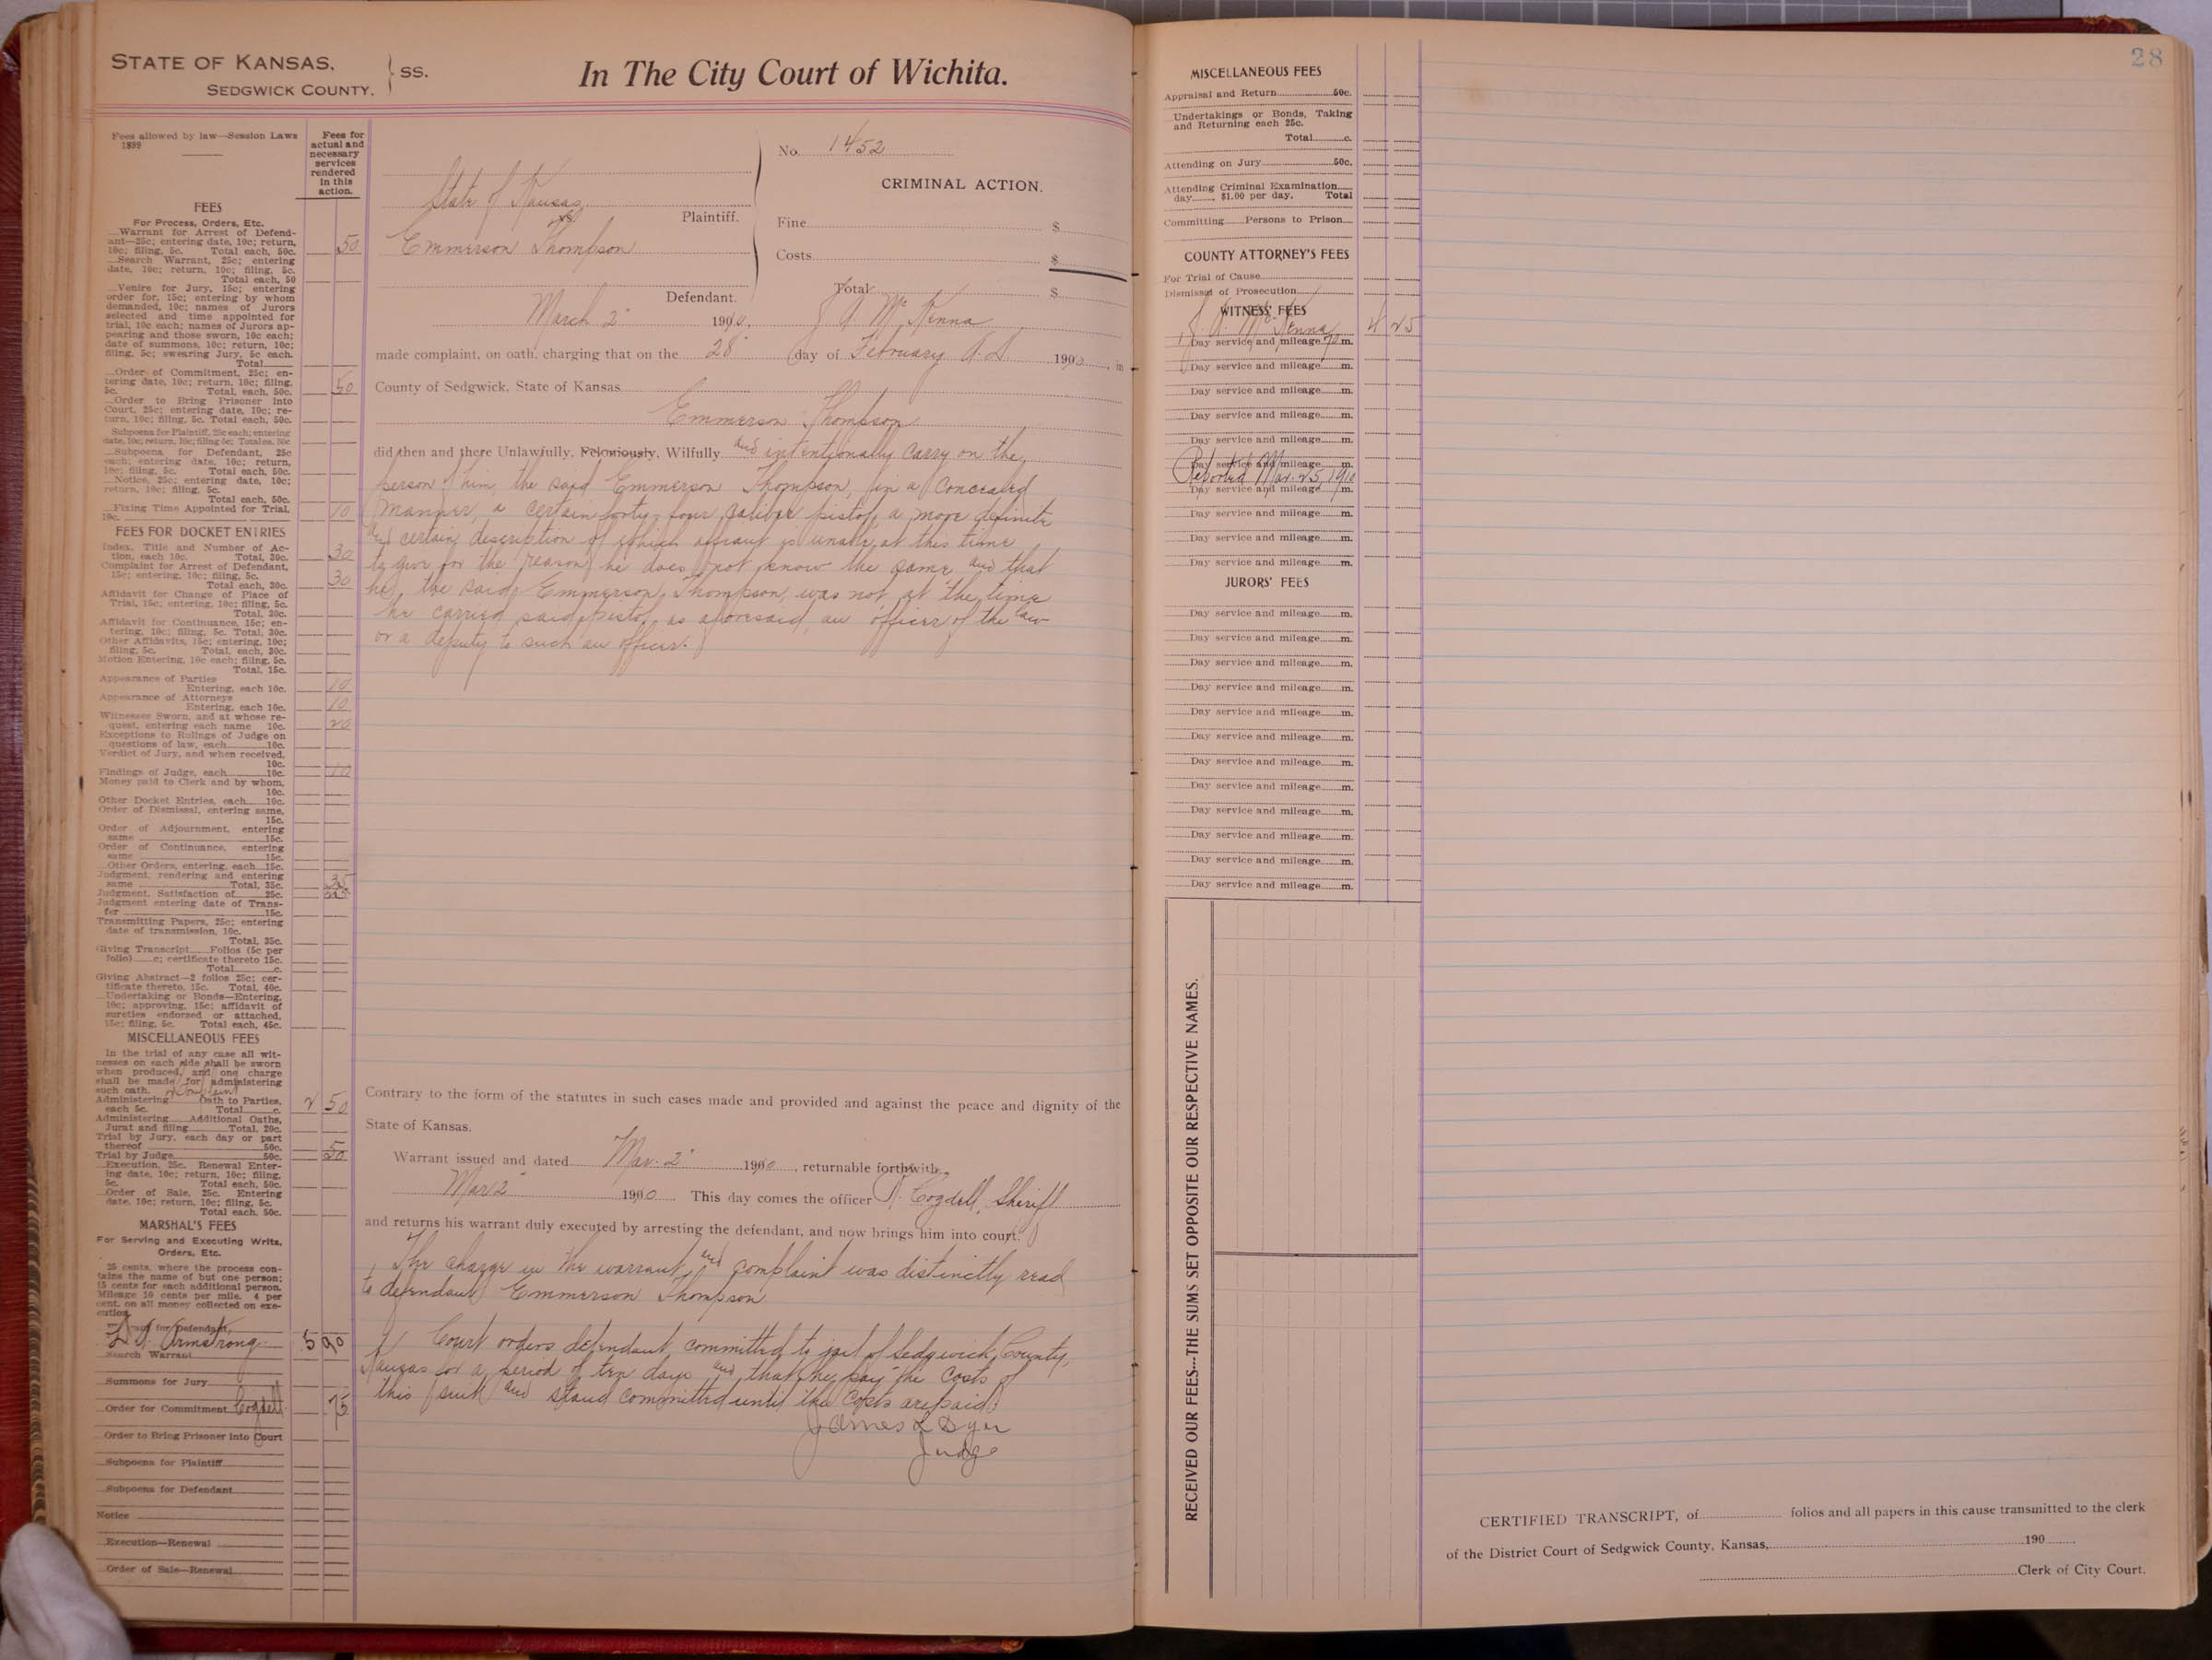 STATE OF KANSAS,
SEDGWICK COUNTY.
} SS.
In The City Court of Wichita.
Fees allowed by law—Session Laws
1899
Fees for
actual and
necessary
services
rendered
in this
action.
FEES
For Process, Orders, Etc.
Warrant for Arrest of Defend-
ant—25c; entering date, 10c; return,
10c; filing, 5c. Total each, 50c. 50
Search Warrant, 25c; entering
date, 10c; return, 10c; filing, 5c.
Total each, 50
Venire for Jury, 15c; entering
order for, 15c; entering by whom
demanded, 10c; names of Jurors
selected and time appointed for
trial, 10c each; names of Jurors ap-
pearing and those sworn, 10c each;
date of summons, 10c; return, 10c;
filing, 5c; swearing Jury, 5c each.
Total
Order of Commitment, 25c; en-
tering date, 10c; return, 10c; filing,
5c. Total, each, 50c. 50
Order to Bring Prisoner into
Court, 25c; entering date, 10c; re-
turn, 10c; filing, 5c. Total each, 50c.
Subpoena for Plaintiff, 25c each; entering
date, 10c; return, 10c; filing 5c; Total ea. 50c
Subpoena for Defendant, 25c
each; entering date, 10c; return,
10c; filing, 5c. Total each, 50c.
Notice, 25c; entering date, 10c;
return, 10c; filing, 5c.
Total each, 50c.
Fixing Time Appointed for Trial,
10c. 10
FEES FOR DOCKET ENTRIES
Index, Title and Number of Ac-
tion, each 10c. Total, 30c. 30
Complaint for Arrest of Defendant,
15c; entering, 10c; filing, 5c.
Total each, 30c. 30
Affidavit for Change of Place of
Trial, 15c; entering, 10c; filing, 5c.
Total, 30c.
Affidavit for Continuance, 15c; en-
tering, 10c; filing, 5c. Total, 30c.
Other Affidavits, 15c; entering, 10c;
filing, 5c. Total, each, 30c.
Motion Entering, 10c each; filing, 5c.
Total, 15c.
Appearance of Parties
Entering, each 10c. 10
Appearance of Attorneys
Entering, each 10c. 10
Witnesses Sworn, and at whose re-
quest, entering each name 10c. 20
Exceptions to Rulings of Judge on
questions of law, each 10c.
Verdict of Jury, and when received,
10c.
Findings of Judge, each 10c. 10
Money paid to Clerk and by whom,
10c.
Other Docket Entries, each 10c.
Order of Dismissal, entering same,
15c.
Order of Adjournment, entering
same 15c.
Order of Continuance, entering
same 15c.
Other Orders, entering, each 15c.
Judgment, rendering and entering
same Total, 35c. 35
Judgment, Satisfaction of 25c. 25
Judgment entering date of Trans-
fer 15c.
Transmitting Papers, 25c; entering
date of transmission, 10c.
Total, 35c.
Giving Transcript Folios (5c per
folio) c; certificate thereto 15c.
Total c.
Giving Abstract—2 folios 25c; cer-
tificate thereto, 15c. Total, 40c.
Undertaking or Bonds—Entering,
10c; approving, 15c; affidavit of
sureties endorsed or attached,
15c; filing, 5c. Total each, 45c.
MISCELLANEOUS FEES
In the trial of any case all wit-
nesses on each side shall be sworn
when produced, and one charge
shall be made for administering
such oath.
Administering Oath to Parties,
each 5c. Total c. 2 50
Administering Additional Oaths,
Jurat and filing Total, 20c.
Trial by Jury, each day or part
thereof 50c.
Trial by Judge 50c. 50
Execution, 25c. Renewal Enter-
ing date, 10c; return, 10c; filing,
5c. Total each, 50c.
Order of Sale, 25c. Entering
date, 10c; return, 10c; filing, 5c.
Total each, 50c.
MARSHAL'S FEES
For Serving and Executing Writs,
Orders, Etc.
25 cents, where the process con-
tains the name of but one person;
15 cents for each additional person.
Mileage 10 cents per mile. 4 per
cent. on all money collected on exe-
cution.
for Defendant,
Armstrong 5 90
Search Warrant
Summons for Jury
Order for Commitment Cogdell 75
Order to Bring Prisoner into Court
Subpoena for Plaintiff
Subpoena for Defendant
Notice
Execution—Renewal
Order of Sale—Renewal
No. 1452
CRIMINAL ACTION.
State of Kansas
Plaintiff.
vs
Emmerson Thompson
Defendant.
Fine $
Costs $
Total $
March 2" 1900, J. A. McKenna
made complaint, on oath, charging that on the 28" day of February A.D. 1900, in
County of Sedgwick, State of Kansas
Emmerson Thompson
did then and there Unlawfully, Feloniously, Wilfully and intentionally carry on the
person of him, the said Emmerson Thompson, in a concealed
manner, a certain forty-four caliber pistol, a more definite
and certain description of which affiant is unable at this time
to give for the reason he does not know the same and that
he, the said Emmerson Thompson, was not, at the time
he carried said pistol, as aforesaid, an officer of the law
or a deputy to such an officer.
Contrary to the form of the statutes in such cases made and provided and against the peace and dignity of the
State of Kansas.
Warrant issued and dated Mar. 2" 1900, returnable forthwith.
Mar 2" 1900. This day comes the officer Cogdell, Sheriff
and returns his warrant duly executed by arresting the defendant, and now brings him into court.
The charge in the warrant and complaint was distinctly read
to defendant Emmerson Thompson
Court orders defendant committed to jail of Sedgwick County,
Kansas for a period of ten days and that he pay the costs of
this suit and stand committed until the costs are paid
James L Dyer
Judge
28
MISCELLANEOUS FEES
Appraisal and Return 50c.
Undertakings or Bonds, Taking
and Returning each 25c.
Total c.
Attending on Jury 50c.
Attending Criminal Examination
day $1.00 per day. Total
Committing Persons to Prison
COUNTY ATTORNEY'S FEES
For Trial of Cause
Dismissal of Prosecution
WITNESS' FEES
J. A. McKenna 4 25
1 Day service and mileage m.
Day service and mileage m.
Day service and mileage m.
Day service and mileage m.
Day service and mileage m.
Day service and mileage m.
Reported Mar. 25, 1910
Day service and mileage m.
Day service and mileage m.
Day service and mileage m.
Day service and mileage m.
JURORS' FEES
Day service and mileage m.
Day service and mileage m.
Day service and mileage m.
Day service and mileage m.
Day service and mileage m.
Day service and mileage m.
Day service and mileage m.
Day service and mileage m.
Day service and mileage m.
Day service and mileage m.
Day service and mileage m.
Day service and mileage m.
RECEIVED OUR FEES---THE SUMS SET OPPOSITE OUR RESPECTIVE NAMES.
CERTIFIED TRANSCRIPT, of folios and all papers in this cause transmitted to the clerk
of the District Court of Sedgwick County, Kansas, 190
Clerk of City Court.